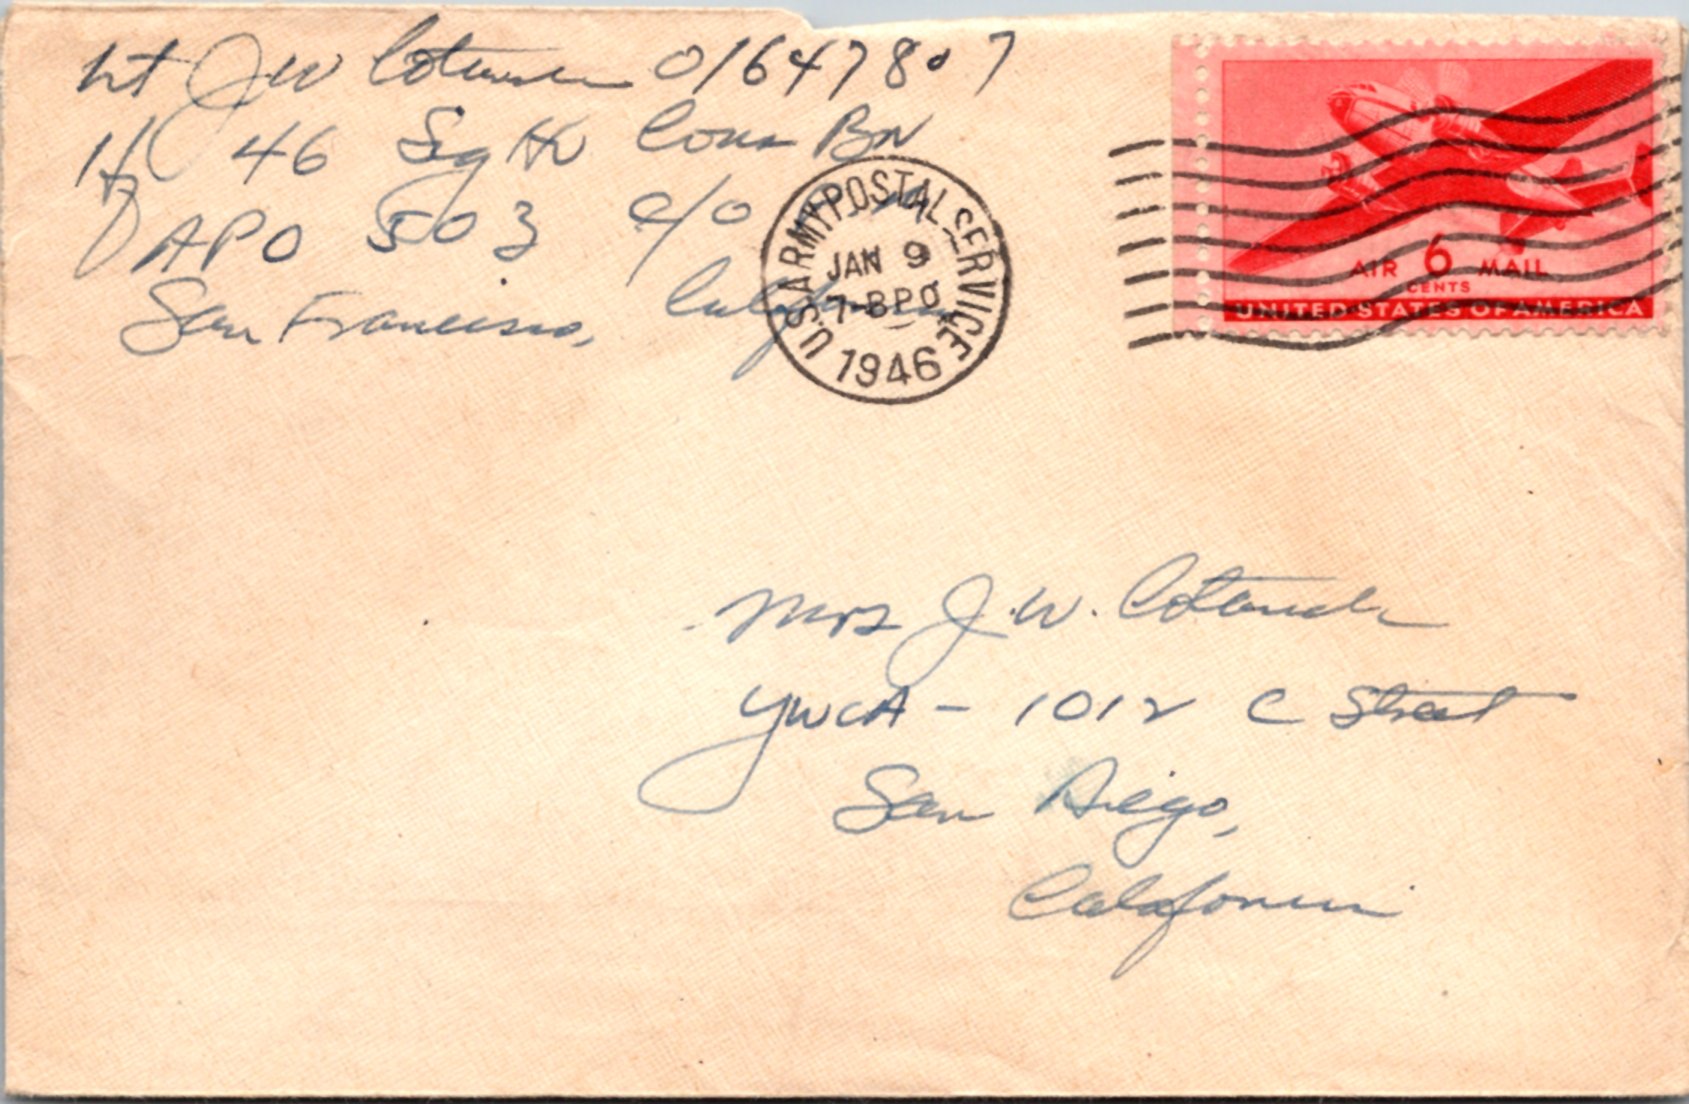 Lt J W 01647807
Hq 46 Sig Hv Cons Bn
APO 503 c/o P.M.
San Francisco, California
U.S. ARMY POSTAL SERVICE
JAN 9
7-BPO
1946
AIR 6 MAIL
CENTS
UNITED STATES OF AMERICA
Mrs J. W.
YWCA - 1012 C Street
San Diego,
California